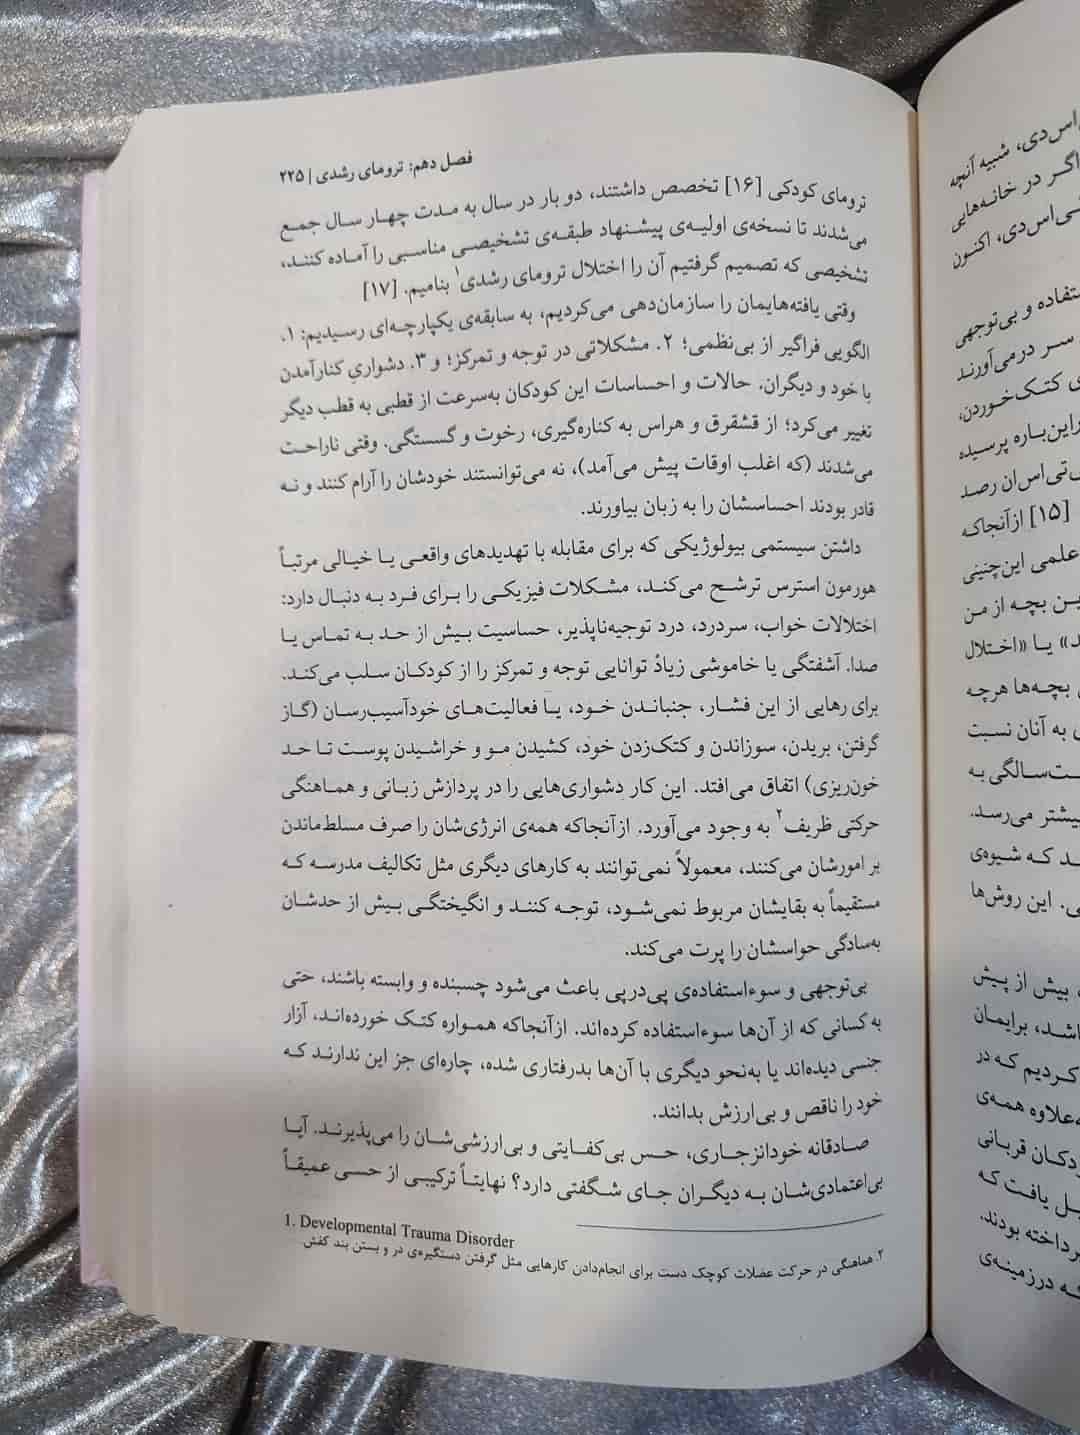 فصل دهم: ترومای رشدی | ۲۲۵
ترومای کودکی [۱۶] تخصص داشتند، دو بار در سال به مدت چهار سال جمع
می‌شدند تا نسخه‌ی اولیه‌ی پیشنهاد طبقه‌ی تشخیصی مناسبی را آماده کنند،
تشخیصی که تصمیم گرفتیم آن را اختلال ترومای رشدی۱ بنامیم. [۱۷]
وقتی یافته‌هایمان را سازمان‌دهی می‌کردیم، به سابقه‌ی یکپارچه‌ای رسیدیم: ۱.
الگویی فراگیر از بی‌نظمی؛ ۲. مشکلاتی در توجه و تمرکز؛ و ۳. دشواریِ کنارآمدن
با خود و دیگران. حالات و احساسات این کودکان به‌سرعت از قطبی به قطب دیگر
تغییر می‌کرد؛ از قشقرق و هراس به کناره‌گیری، رخوت و گسستگی. وقتی ناراحت
می‌شدند (که اغلب اوقات پیش می‌آمد)، نه می‌توانستند خودشان را آرام کنند و نه
قادر بودند احساسشان را به زبان بیاورند.
داشتن سیستمی بیولوژیکی که برای مقابله با تهدیدهای واقعی یا خیالی مرتباً
هورمون استرس ترشح می‌کند، مشکلات فیزیکی را برای فرد به دنبال دارد:
اختلالات خواب، سردرد، درد توجیه‌ناپذیر، حساسیت بیش از حد به تماس یا
صدا. آشفتگی یا خاموشی زیادْ توانایی توجه و تمرکز را از کودکان سلب می‌کند.
برای رهایی از این فشار، جنباندن خود، یا فعالیت‌های خودآسیب‌رسان (گاز
گرفتن، بریدن، سوزاندن و کتک‌زدن خود، کشیدن مو و خراشیدن پوست تا حد
خون‌ریزی) اتفاق می‌افتد. این کار دشواری‌هایی را در پردازش زبانی و هماهنگی
حرکتی ظریف۲ به وجود می‌آورد. ازآنجاکه همه‌ی انرژی‌شان را صرف مسلط‌ماندن
بر امورشان می‌کنند، معمولاً نمی‌توانند به کارهای دیگری مثل تکالیف مدرسه که
مستقیماً به بقایشان مربوط نمی‌شود، توجه کنند و انگیختگی بیش از حدشان
به‌سادگی حواسشان را پرت می‌کند.
بی‌توجهی و سوءاستفاده‌ی پی‌درپی باعث می‌شود چسبنده و وابسته باشند، حتی
به کسانی که از آن‌ها سوءاستفاده کرده‌اند. ازآنجاکه همواره کتک خورده‌اند، آزار
جنسی دیده‌اند یا به‌نحو دیگری با آن‌ها بدرفتاری شده، چاره‌ای جز این ندارند که
خود را ناقص و بی‌ارزش بدانند.
صادقانه خودانزجاری، حس بی‌کفایتی و بی‌ارزشی‌شان را می‌پذیرند. آیا
بی‌اعتمادی‌شان به دیگران جای شگفتی دارد؟ نهایتاً ترکیبی از حسی عمیقاً
1. Developmental Trauma Disorder
۲. هماهنگی در حرکت عضلات کوچک دست برای انجام‌دادن کارهایی مثل گرفتن دستگیره‌ی در و بستن بند کفش.
اس‌دی، شبیه آنچه
اگر در خانه‌هایی
ی‌اس‌دی، اکنون
ستفاده و بی‌توجهی
سر درمی‌آورند
ی کتک‌خوردن،
راین‌باره پرسیده
‌تی‌اس‌ان رصد
[۱۵] ازآنجاکه
علمی این‌چنینی
ین بچه از من
د» یا «اختلال
بچه‌ها هرچه
ی به آنان نسبت
ت‌سالگی به
یشتر می‌رسد.
د که شیوه‌ی
ی. این روش‌ها
بیش از پیش
اشد، برایمان
کردیم که در
ه‌علاوه همه‌ی
دکان قربانی
یل یافت که
رداخته بودند.
که درزمینه‌ی